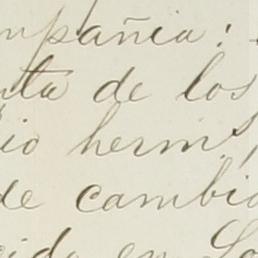 mpañia:
nta de los
io herms,
de cambio
cido en Lo